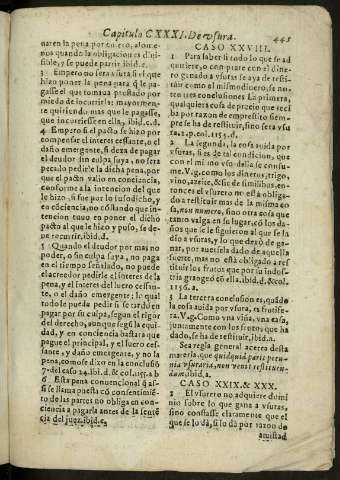 Capitulo CXXXI. De vsura. 445
naren la pena por entero, alo me-
nos quando la obligacion es diui-
sible, y se puede partir ibid.c.
3 Empero no sera vsura si el que
hizo poner la pena gara q̃ le pa-
gasse el que tomaua prestado por
miedo de incurrirla: mayormen-
te queriendo mas que le pagasse,
que incurriesse en ella, ibid.c.d.
4 Empero si el pacto se hizo por
compensar el interes cessante, o el
daño emergente, si dexa de pagar
el deudor sin culpa suya, no sera
pecado pedirle la dicha pena, por
que el pacto valio en conciencia,
conforme a la intencion del que
le hizo, si fue por lo susodicho, y
en cõciencia, no costando que in-
tencion tuuo en poner el dicho
pacto al que le hizo y puso, se de-
ue recurrir. ibid.d.
5 Quando el deudor por mas no
poder, o sin culpa suya, no paga
en el tiempo señalado, no puede
el acreedor pedirle el interes de la
pena, y el interes del lucro cessan-
te, o el daño emergente: lo qual
todo se puede pedir si se tardò en
pagar por su culpa, segun el rigor
del derecho, aunque segũ la equi-
dad, y en conciencia bastara que
pague el principal, y el lucro ces-
sante, y daño emergente, y no la
pena, como se dixo en la conclusiõ
7. del caso 24. ibid.d. & col.1155.a b
6 Esta pena conuencional q̃ as-
si se llama puesta cõ consentimiẽ-
to de las partes no obliga en con-
ciencia a pagarla antes de la sentẽ
cia del juez. ibid.c.
CASO XXVIII.
1 Para saber si todo lo que se ad
quiriere, o con parte con el dine-
ro ganado a vsuras se aya de resti-
tuir como el mismo dinero, se no-
ten tres conclusiones La primera,
qualquiera cosa de precio que reci
ba por razon de emprestito siem-
pre se ha de restituir, sino sera vsu
ra. 2. p. col. 1155.d.
2 La segunda, la cosa auida por
vsuras, si es de tal condicion, que
con el mismo vso della se consu-
me. V.g. como los dineros, trigo,
vino, azeite, & sic de similibus, en-
tonces el vsurero no està obliga-
do a restituir mas de la misma co
sa, non numero, sino otra cosa que
tanto valga en su lugar, cõ los da-
ños que se le siguieron al que se la
diò a vsuras, y lo que dexò de ga-
nar, por auersela dado de aquella
suerte, mas no està obligado a res
tituir los frutos que por su indus-
tria grangeò en ella. ibid.d. & col.
1156.a.
3 La tercera conclusion es, quãdo
la cosa auida por vsura, es frutife-
ra. V.g. Como vna viña, vna casa,
juntamente con los frutos que ha
dado, se ha de restituir, ibid.a.
Sea regla general acerca desta
materia, que quidquid parit pecu-
nia vsuraria, non venit restituen-
dum. ibid.a.
CASO XXIX. & XXX.
1 El vsurero no adquiere domi
nio sobre lo que gana a vsuras,
sino constasse claramente que el
que se lo dà, si lo dà por razon de
amistad